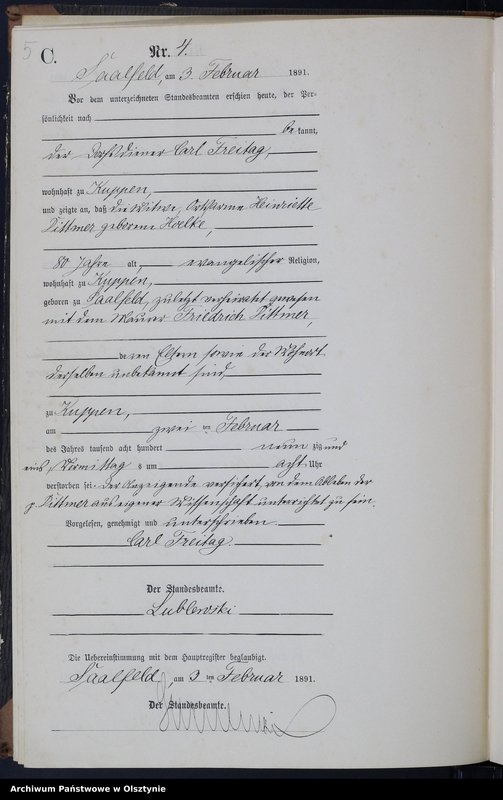 5
C.
Nr. 4.
Saalfeld, am 3. Februar 1891.
Vor dem unterzeichneten Standesbeamten erschien heute, der Per-
sönlichkeit nach
be kannt,
der Dorfdiener Carl Freitag,
wohnhaft zu Kuppen,
und zeigte an, daß die Witwe, Ortsarme Heinriette
Dittmer geborene Hoelke,
80 Jahre alt, evangelischer Religion,
wohnhaft zu Kuppen,
geboren zu Saalfeld, zuletzt verheiratet gewesen
mit dem Maurer Friedrich Dittmer,
deren Eltern sowie der Wohnort
derselben unbekannt sind,
zu Kuppen,
am zwei ten Februar
des Jahres tausend acht hundert neun zig und
eins, Vormittags um acht Uhr
verstorben sei. Der Anzeigende versichert, von dem Ableben der
p. Dittmer aus eigener Wissenschaft unterrichtet zu sein.
Vorgelesen, genehmigt und unterschrieben
Carl Freitag
Der Standesbeamte.
Lublewski
Die Uebereinstimmung mit dem Hauptregister beglaubigt.
Saalfeld, am 3 ten Februar 1891.
Der Standesbeamte.
Archiwum Państwowe w Olsztynie